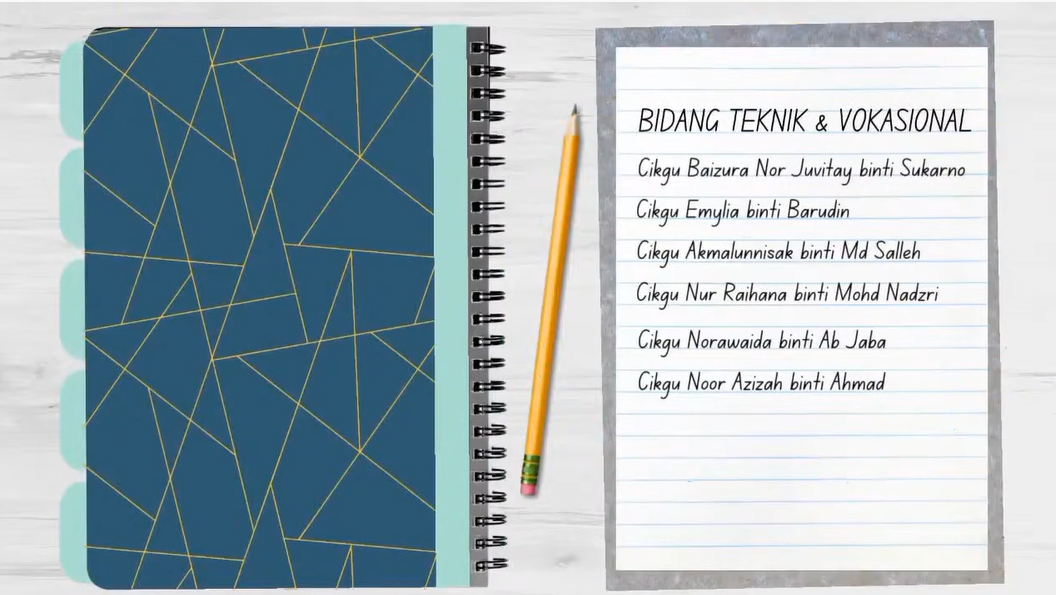 BIDANG TEKNIK & VOKASIONAL
Cikgu Baizura Nor Juvitay binti Sukarno
Cikgu Emylia binti Barudin
Cikgu Akmalunnisak binti Md Salleh
Cikgu Nur Raihana binti Mohd Nadzri
Cikgu Norawaida binti Ab Jaba
Cikgu Noor Azizah binti Ahmad